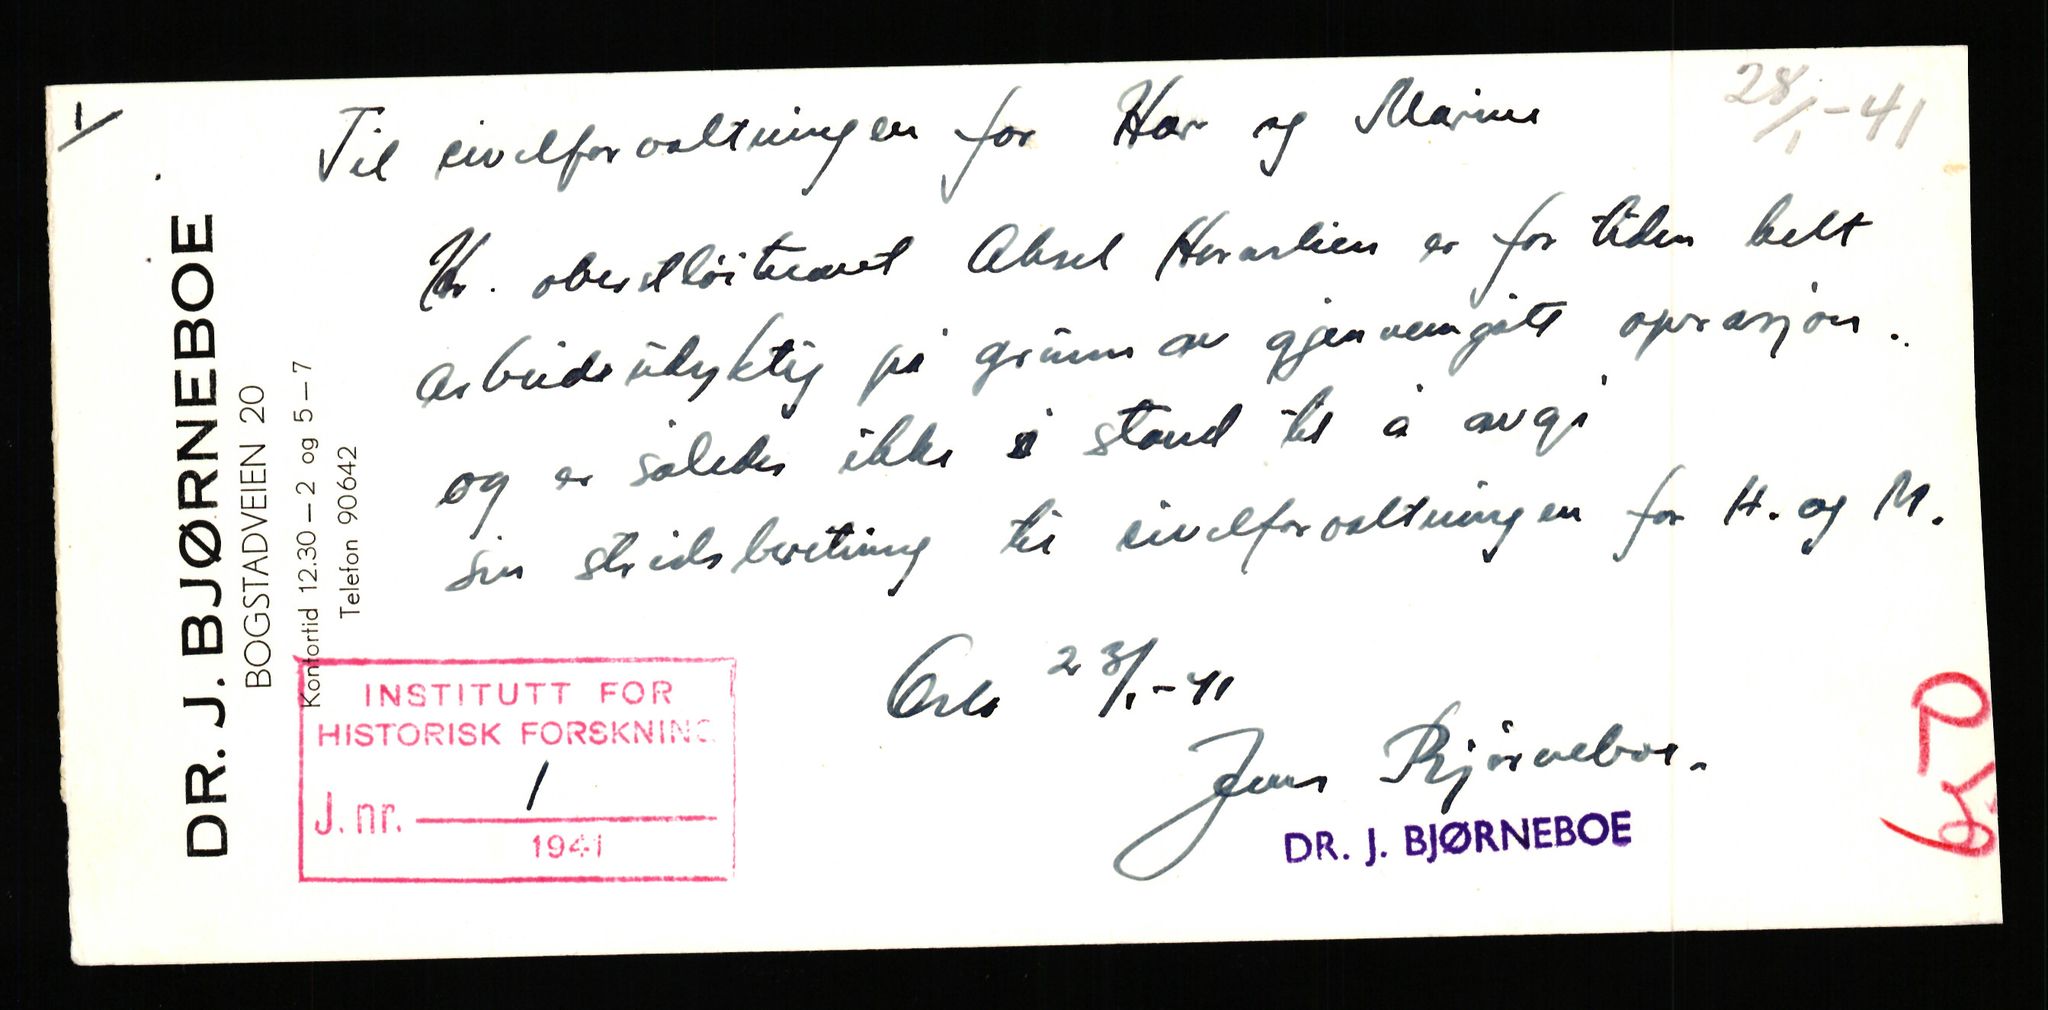 1/
28/1-41
DR. J. BJØRNEBOE
BOGSTADVEIEN 20
Kontortid 12.30–2 og 5–7
Telefon 90642
Til sivilforvaltningen for Hær og Marine
Hr. oberstløitnant Aksel er for tiden helt
arbeidsudyktig på grunn av gjennemgått operasjon.
og er således ikke i stand til å avgi
sin stridsberetning til sivilforvaltningen for H. og M.
Oslo 23/1-41
Jens Bjørneboe.
DR. J. BJØRNEBOE
INSTITUTT FOR
HISTORISK FORSKNING
J. nr. 1
1941